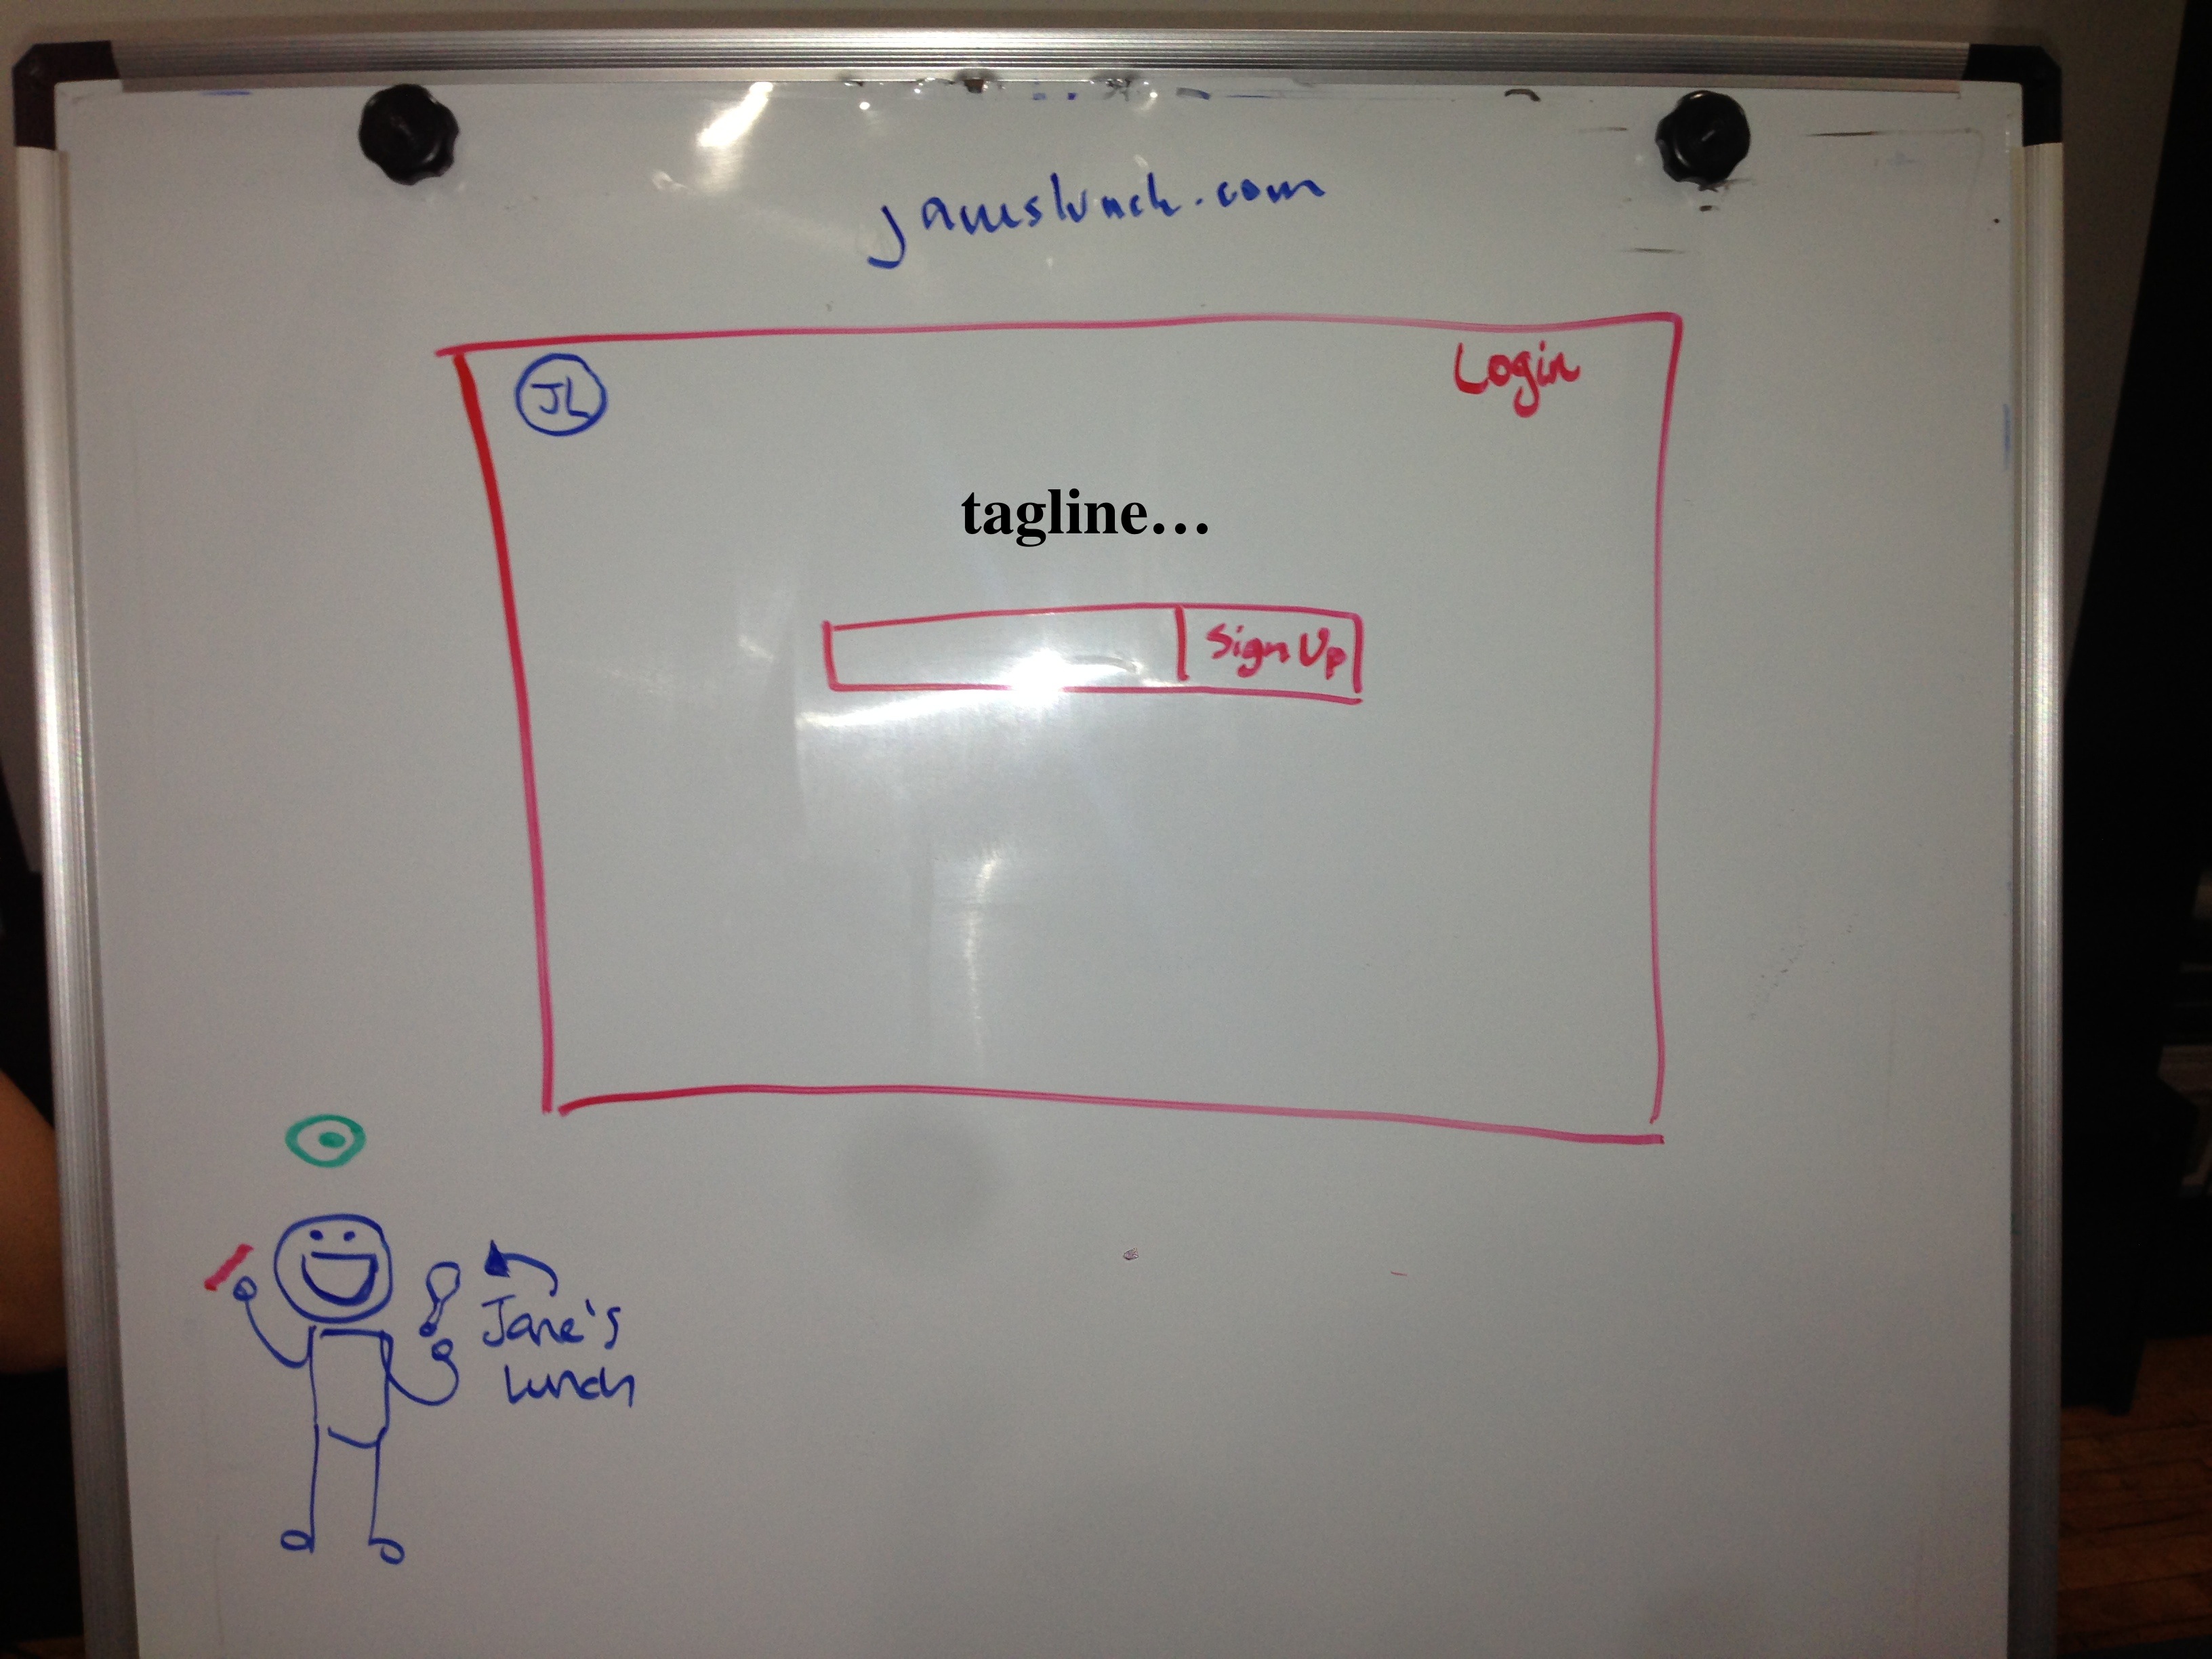 janeslunch.com
JL
Login
tagline…
Sign Up
Jane's
Lunch